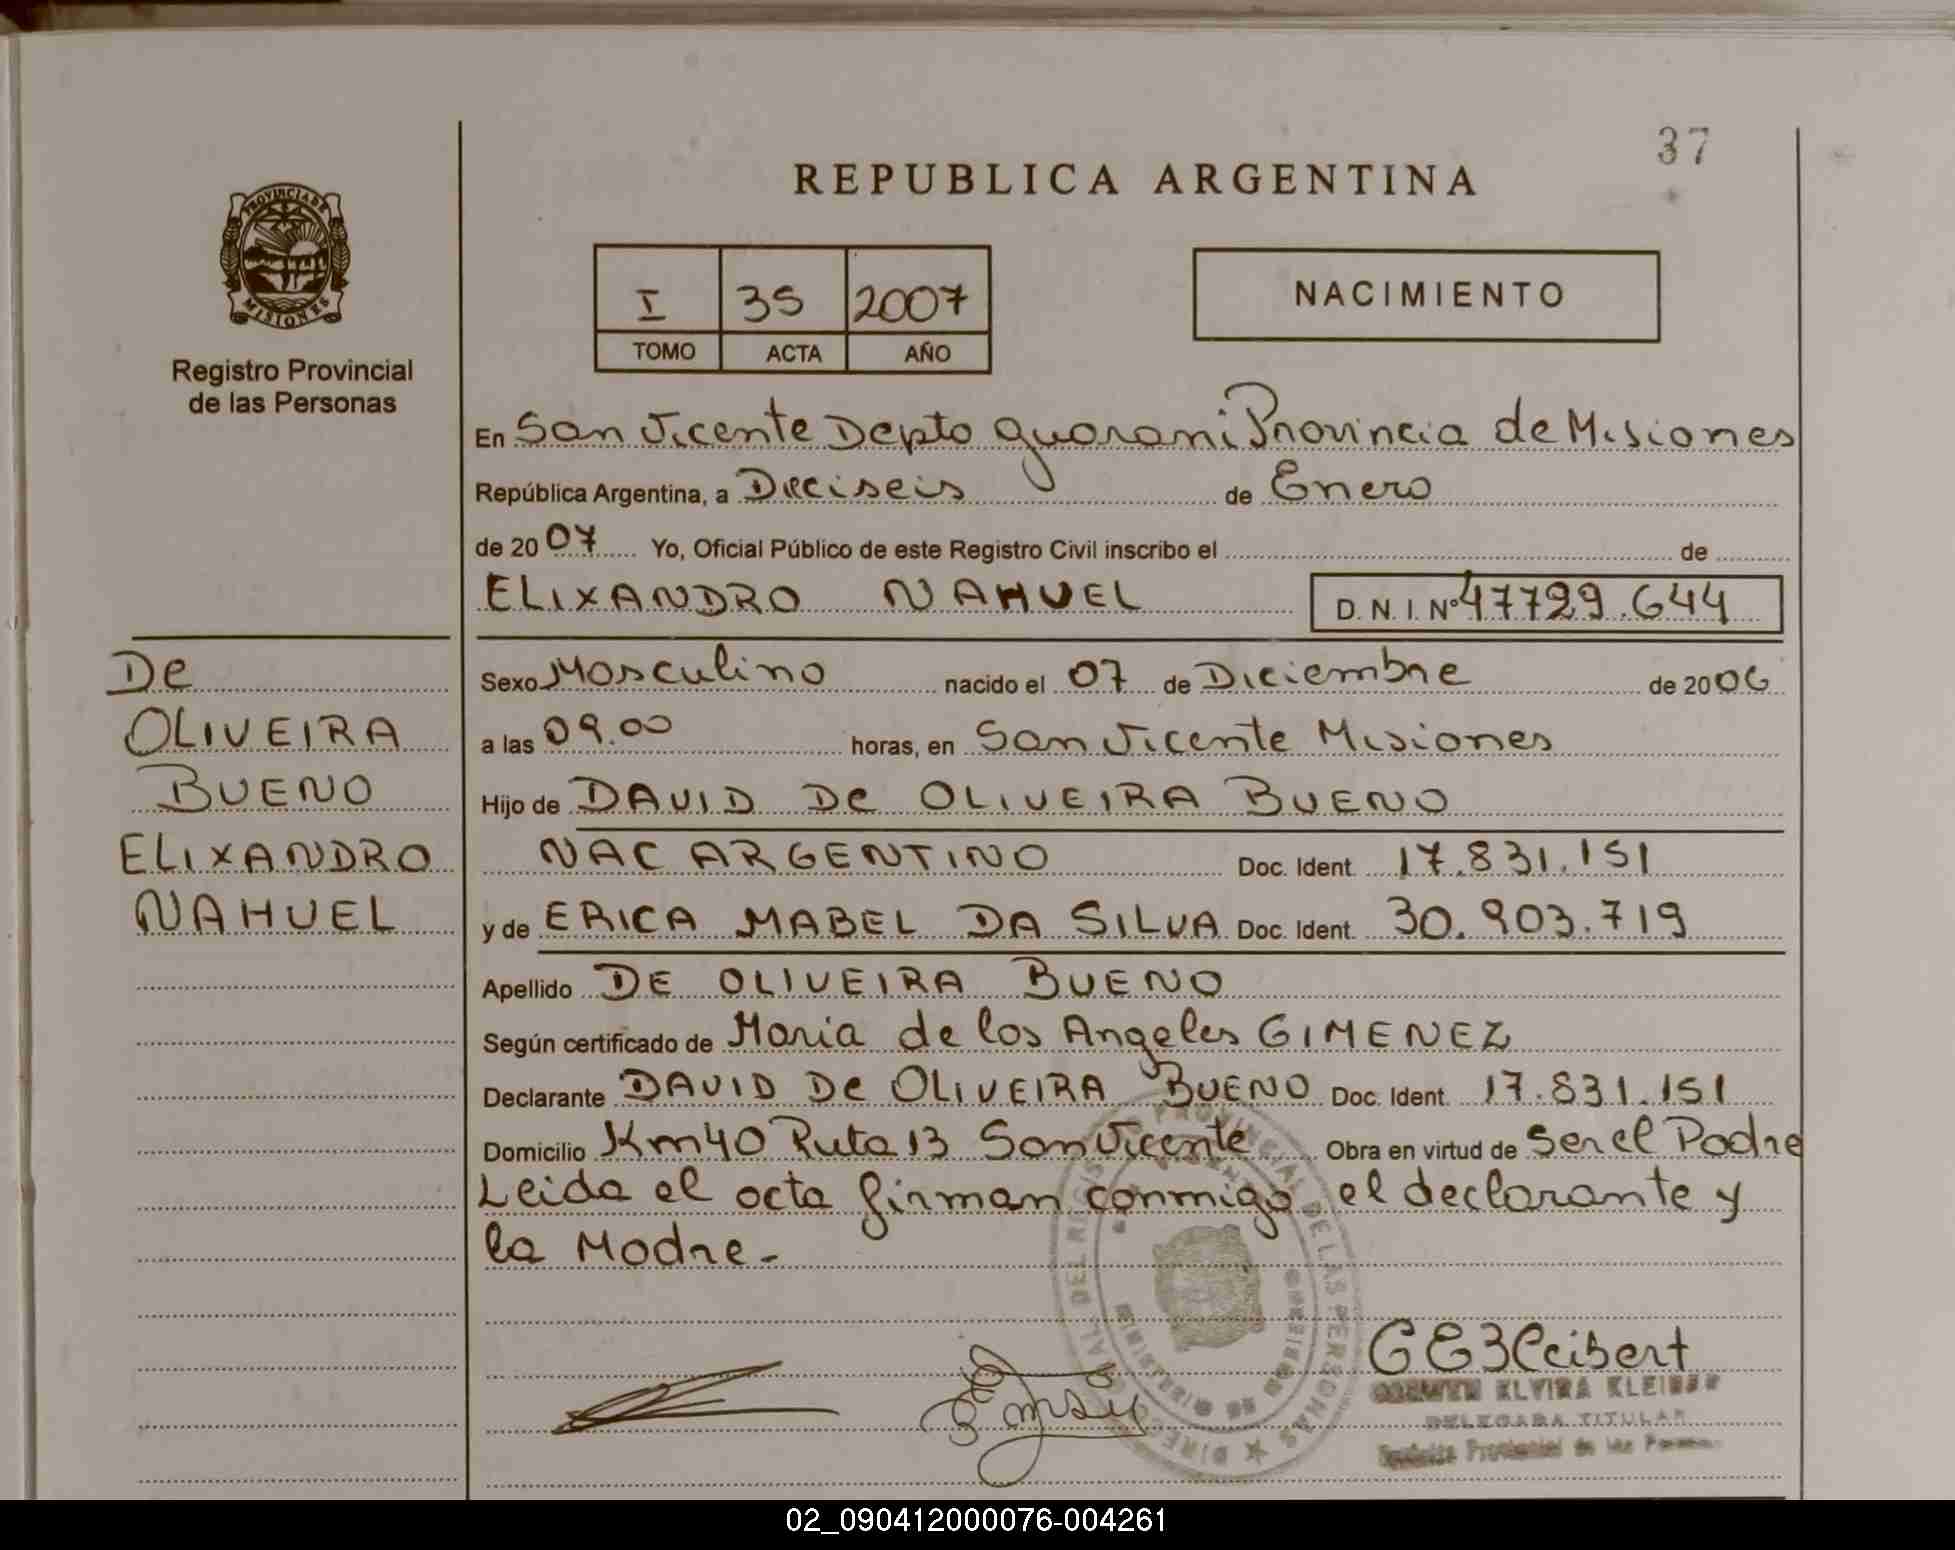 37
REPUBLICA ARGENTINA
PROVINCIA DE
MISIONES
Registro Provincial
de las Personas
I 35 2007
TOMO ACTA AÑO
NACIMIENTO
En San Vicente Depto guarani Provincia de Misiones
República Argentina, a Dieciseis de Enero
de 20 07 Yo, Oficial Público de este Registro Civil inscribo el de
ELIXANDRO NAHUEL D. N. I. Nº 47729.644
De
OLIVEIRA
BUENO
ELIXANDRO
NAHUEL
Sexo Masculino nacido el 07 de Diciembre de 2006
a las 09.00 horas, en San Vicente Misiones
Hijo de DAVID De OLIVEIRA BUENO
NAC ARGENTINO Doc. Ident. 17.831.151
y de ERICA MABEL DA SILVA Doc. Ident. 30.903.719
Apellido DE OLIVEIRA BUENO
Según certificado de Maria de los Angeles GIMENEZ
Declarante DAVID De OLIVEIRA BUENO Doc. Ident. 17.831.151
Domicilio Km 40 Ruta 13 San Vicente Obra en virtud de Ser el Padre
Leida el acta firman conmigo el declarante y
la Madre-
DEL REGIS PROVINCIAL DE LAS PERSONAS
ELVIRA
DELEGADA TITULAR
Provincial de las
02_090412000076-004261